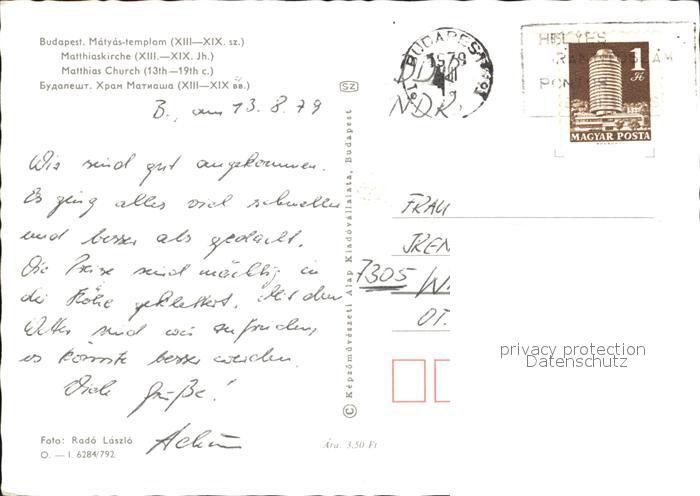 Budapest. Mátyás-templom (XIII—XIX. sz.)
Matthiaskirche (XIII.—XIX. Jh.)
Matthias Church (13th—19th c.)
Будапешт. Храм Матиаша (XIII—XIX вв.)
B., am 13.8.79
Wir sind gut angekommen.
Es ging alles viel schneller
und besser als gedacht.
Die Preise sind mächtig in
die Höhe geklettert. Mit dem
Wetter sind wir zufrieden,
es könnte besser werden.
Viele Grüße!
Achim
Foto: Radó László
O. — I. 6284/792
Ára: 3,50 Ft
SZ
© Képzőművészeti Alap Kiadóvállalata, Budapest
BUDAPEST
1979
DDR
NDK
HELYES
PON
1 Ft
MAGYAR POSTA
FRAU
IREN
7305 W
OT.
privacy protection
Datenschutz